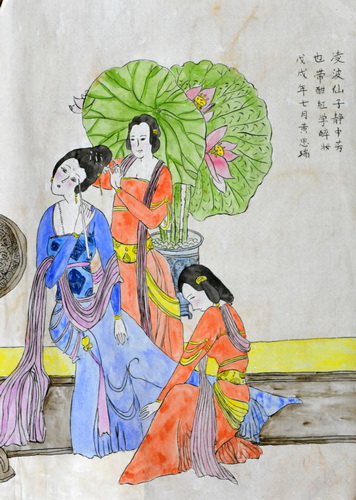 凌波仙子静中芳
也带酣红学醉妆
戊戌年七月黄思瑞